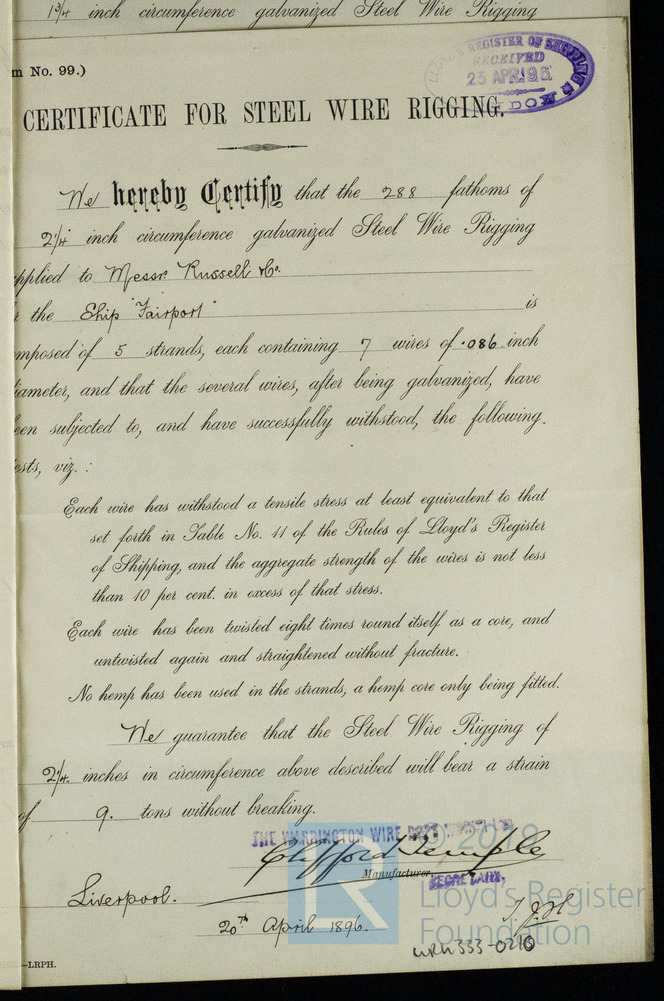 1 3/4 inch circumference galvanized Steel Wire Rigging
m No. 99.)
LLOYD'S REGISTER OF SHIPPING
RECEIVED
23 APR. 96
CERTIFICATE FOR STEEL WIRE RIGGING.
We hereby Certify that the 288 fathoms of
2 1/4 inch circumference galvanized Steel Wire Rigging
pplied to Messrs Russell & Co.
the Ship "Fairport" is
mposed of 5 strands, each containing 7 wires of .086 inch
iameter, and that the several wires, after being galvanized, have
een subjected to, and have successfully withstood, the following
ests, viz. :
Each wire has withstood a tensile stress at least equivalent to that
set forth in Table No. 11 of the Rules of Lloyd's Register
of Shipping, and the aggregate strength of the wires is not less
than 10 per cent. in excess of that stress.
Each wire has been twisted eight times round itself as a core, and
untwisted again and straightened without fracture.
No hemp has been used in the strands, a hemp core only being fitted.
We guarantee that the Steel Wire Rigging of
2 1/4 inches in circumference above described will bear a strain
of 9. tons without breaking.
THE WARRINGTON WIRE ROPE
© 2019
Clifford Temple
Manufacturer.
SECRETARY.
Liverpool.
20th April 1896.
LR
Lloyd's Register
Foundation
WRH333-0210
—LRPH.